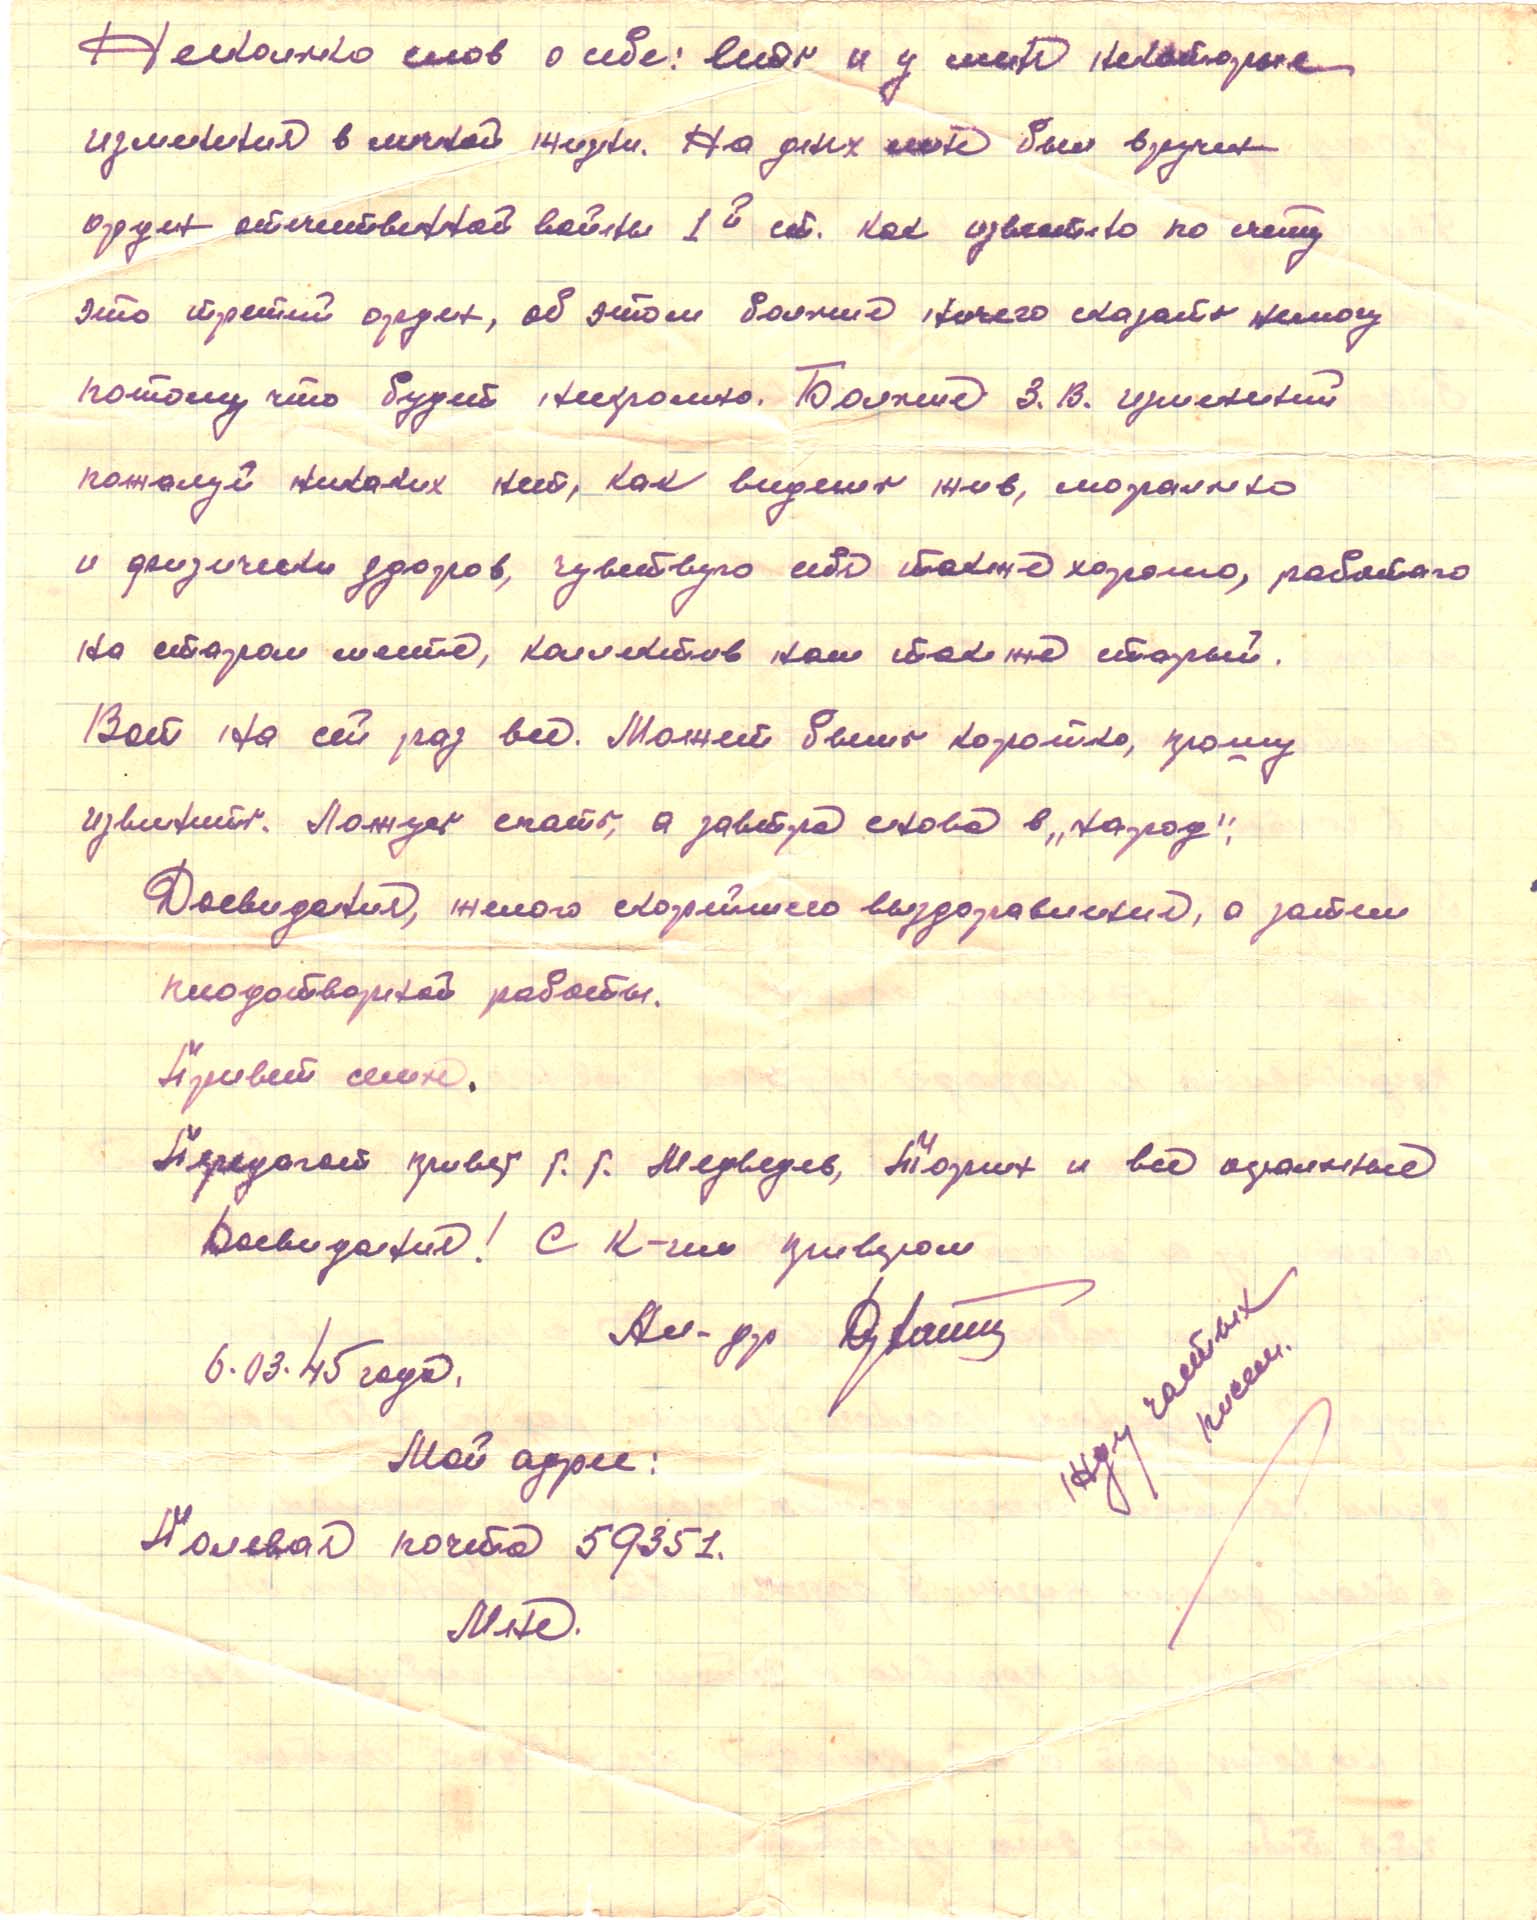 Несколько слов о себе: Есть и у меня некоторые
изменения в личной жизни. На днях мне был вручен
орден отечественной войны 1й ст. как известно по счету
это третий орден, об этом больше ничего сказать немогу
потому что будет нескромно. Больше З.В. изменений
пожалуй никаких нет, как видешь жив, морально
и физически здоров, чувствую себя также хорошо, работаю
на старом месте, коллектив наш также старый.
Вот на сей раз все. Может быть коротко, прошу
извинить. Ложусь спать, а завтра снова в „народ".
Досвидания, желаю скорейшего выздоравления, а затем
плодотворной работы.
Привет семье.
Передают привет т. т. Медведев, Торин и все остальные
Досвидания! С К-им приветом
Ал-др
6.03.45 года.
Жду частых
писем.
Мой адрес:
Полевая почта 59351.
Мне.